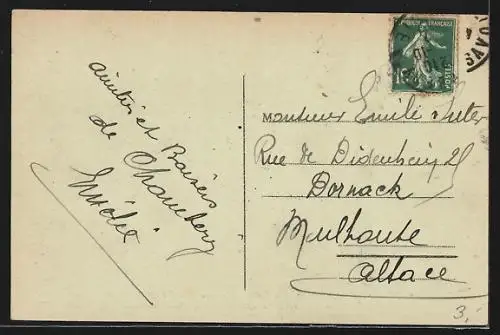 amitiés et Baisers
de Chambery
RÉPUBLIQUE FRANÇAISE
POSTES
SAVOIE
Monsieur Emile Suter
Rue de Didenheim 21
Dornack
Mulhouse
Alsace
3,